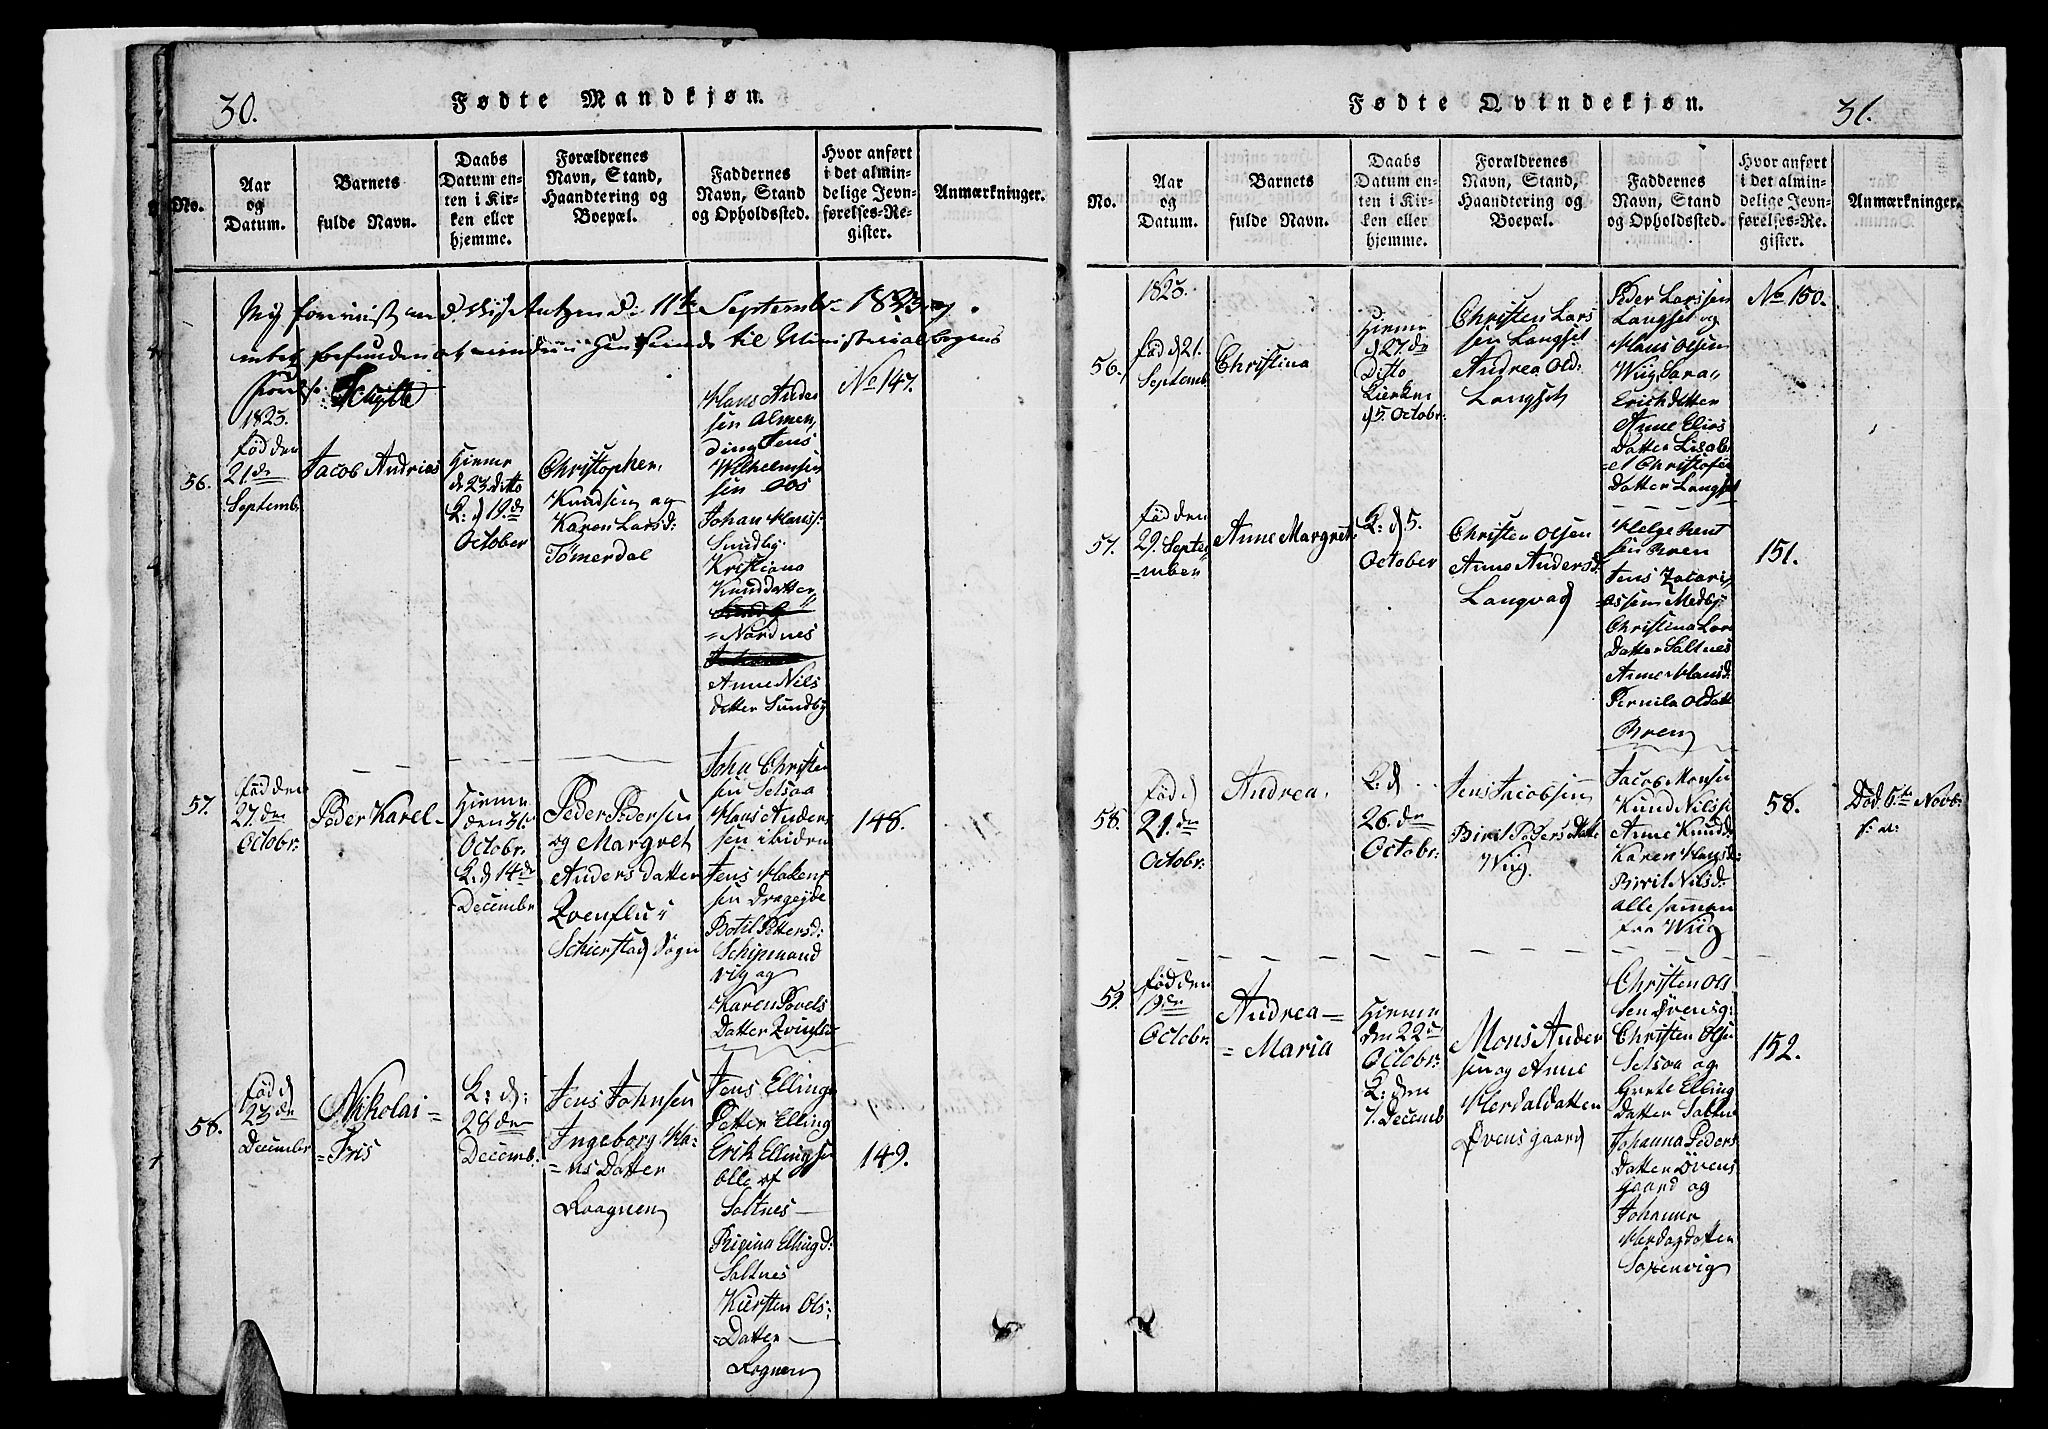 30.
Fødte Mandkjøn.
No.
Aar
og
Datum.
Barnets
fulde Navn.
Daabs
Datum en-
ten i Kir-
ken eller
hjemme.
Forældrenes
Navn, Stand,
Haandtering og
Boepæl.
Faddernes
Navn, Stand
og Opholdssted.
Hvor anført
i det almin-
delige Jevn-
førelses-Re-
gister.
Anmærkninger.
11te September 1823
til Ministerialbogens
1823.
56.
fød den
21de
Septemb.
Jacob Andrias
Hiemme
d 23 ditto
K: d 19de
October
Christopher
Knudsen og
Karen Larsd:
Tømerdal
Hans Ander
sen Almen
ding Jens
Wilhelmsen
Johan Hanss:
Sundby
Kristiana
Knuddatter
=Nordnes
Anne Nils
datter Sundby
No 147.
57.
fød den
27den
Octobr:
Peder Karel
Hiemme
den 31
Octobr:
K: d 14de
Decembr
Peder Pedersen
og Margret
Anders datter
Schierstad Sogn
John Christen
sen Setsaa
Hans Anders
sen ibidem
Jens Haken
sen Drageide
Botil Pettersd:
Schipmand
vig og
Karen Povels
Datter
148.
58.
fød d
23de
Decembr
Nikolai=
=Fris
K: d:
28de
Decemb:
Jens Johnsen
Ingeborg Ha=
=ns Datter
Raagnen
Jens Elling
Petter Elling
Erik Ellingsen
alle af
Saltnes
Regina Ellingd:
Saltnes
Kiersten Ols=
=Datter
Rognen
149.
31.
Fødte Qvindekjøn.
No.
Aar
og
Datum.
Barnets
fulde Navn.
Daabs
Datum en-
ten i Kir-
ken eller
hjemme.
Forældrenes
Navn, Stand,
Haandtering og
Boepæl.
Faddernes
Navn, Stand
og Opholdssted.
Hvor anført
i det almin-
delige Jevn-
førelses-Re-
gister.
Anmærkninger.
1823.
56.
fød d 21.
Septemb.
Christina
Hiemme
d 27de
Ditto
Kierken
d 5. Octobr:
Christen Lars
sen Langset
Andrea Old:
Langset
Peder Larssen
Langset og
Hans Olsen
Wiig Sara
Erichdatter
Anne Elias
Datter Lisabe
=t Christofer
Datter Langset
No 150.
57.
fød den
29. Septe
=mber
Anne Margret
K: d 5.
October
Christen Olsen
Anne Andersd:
Langvad
Helge Bent
sen Bren
Jens Zacari
=assen Medby
Christina Lars
Datter Saltnes
Anne Hansd:
Pernila Oldatt
Bren
151.
58.
Fød d
21.de
Octobr:
Andrea.
K: d
26.de
Octobr:
Jens Jacobsen
Birel Peders datte
Wiig.
Jacob Monsen
Knud Nilss:
Anne Knudd:
Karen Hansd:
Birrit Nilsd:
alle samen
fra Wiig
58.
Død 6te Novb:
s: a:
59.
fød den
19de
Octobr:
Andrea=
=Maria
Hiemme
den 22de
Octobr:
K: den
7. Decemb
Mons Ander
sen og Anne
Herdaldatter
Øvensgaard
Christen Ol
sen Øvensg:
Christen Olsen
Setsaa og
Grete Elling
Datter Saltnes
Johanna Peders
Datter Øvens
gaard og
Johanna
Herdagdatter
Saxenvig
152.